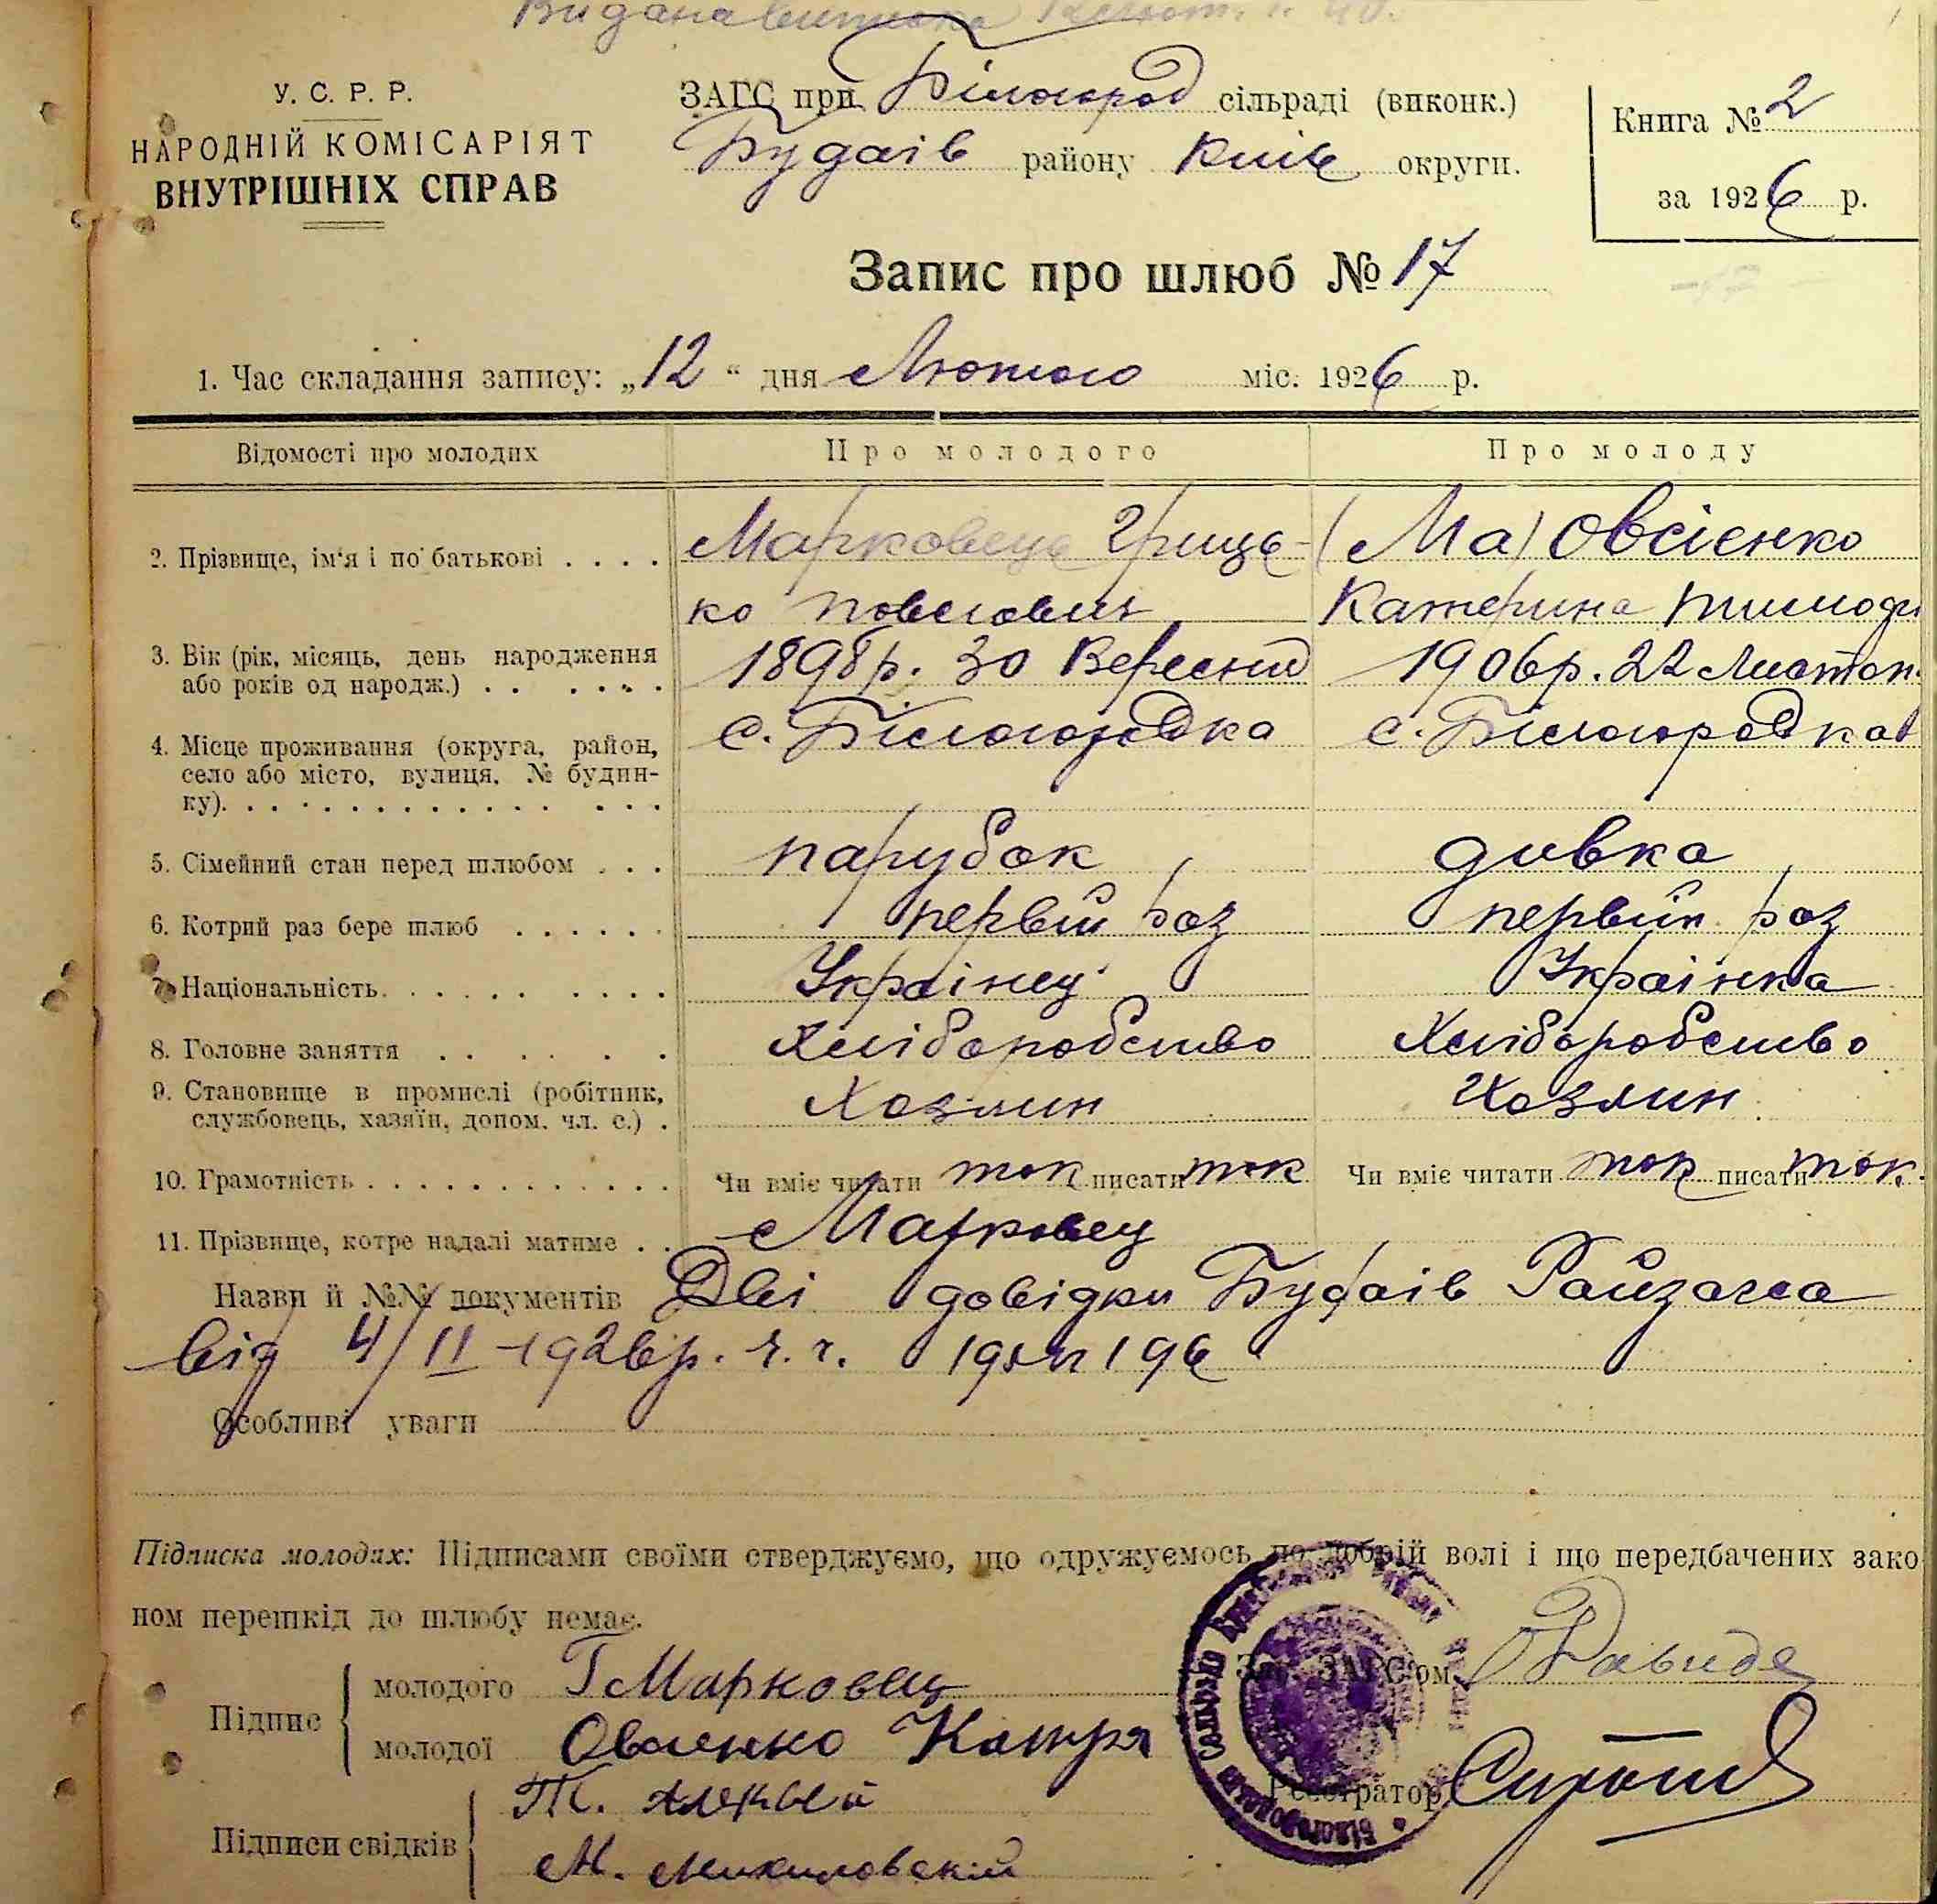 Видана виписка
У. С. Р. Р.
НАРОДНІЙ КОМІСАРІЯТ
ВНУТРІШНІХ СПРАВ
ЗАГС при Білогород сільраді (виконк.)
Будаів району Киів округи.
Книга № 2
за 1926 р.
Запис про шлюб № 17
1. Час складання запису: „12“ дня Лютого міс. 1926 р.
Відомості про молодих
Про молодого
Про молоду
2. Прізвище, ім‘я і по батькові . . . .
Марковець Грицо-
ко Повлович
(Ма) Овсієнко
Катерина Тимофі
3. Вік (рік, місяць, день народження
або років од народж.) . . . . . .
1898р. 30 Вересня
1906р. 22 Листоп.
4. Місце проживання (округа, район,
село або місто, вулиця, № будин-
ку). . . . . . . . . . . . . . . .
с. Білогородка
с. Білогородка
5. Сімейний стан перед шлюбом . . .
парубок
дивка
6. Котрий раз бере шлюб . . . . . .
первий раз
первий раз
7. Національність. . . . . . . . . .
Украінец
Украінка
8. Головне заняття . . . . . .
Хліборобство
Хліборобство
9. Становище в промислі (робітник,
службовець, хазяїн, допом. чл. с.) .
Хозяин
Хозяин
10. Грамотність . . . . . . . . . . . .
Чи вміє читати так писати так
Чи вміє читати так писати так.
11. Прізвище, котре надалі матиме . .
Марковец
Назви й №№ документів Дві довідки Будаів Райзагса
від 4/II-1926р. ч. ч.
Особливі уваги
Підписка молодих: Підписами своїми стверджуємо, що одружуємось по добрій волі і що передбачених зако
ном перешкід до шлюбу немає.
Підпис
молодого Г Марковец
молодої Овсиенко Катря
Зав. ЗАГС‘ом
Реєстратор
Підписи свідків
М. Михиловский